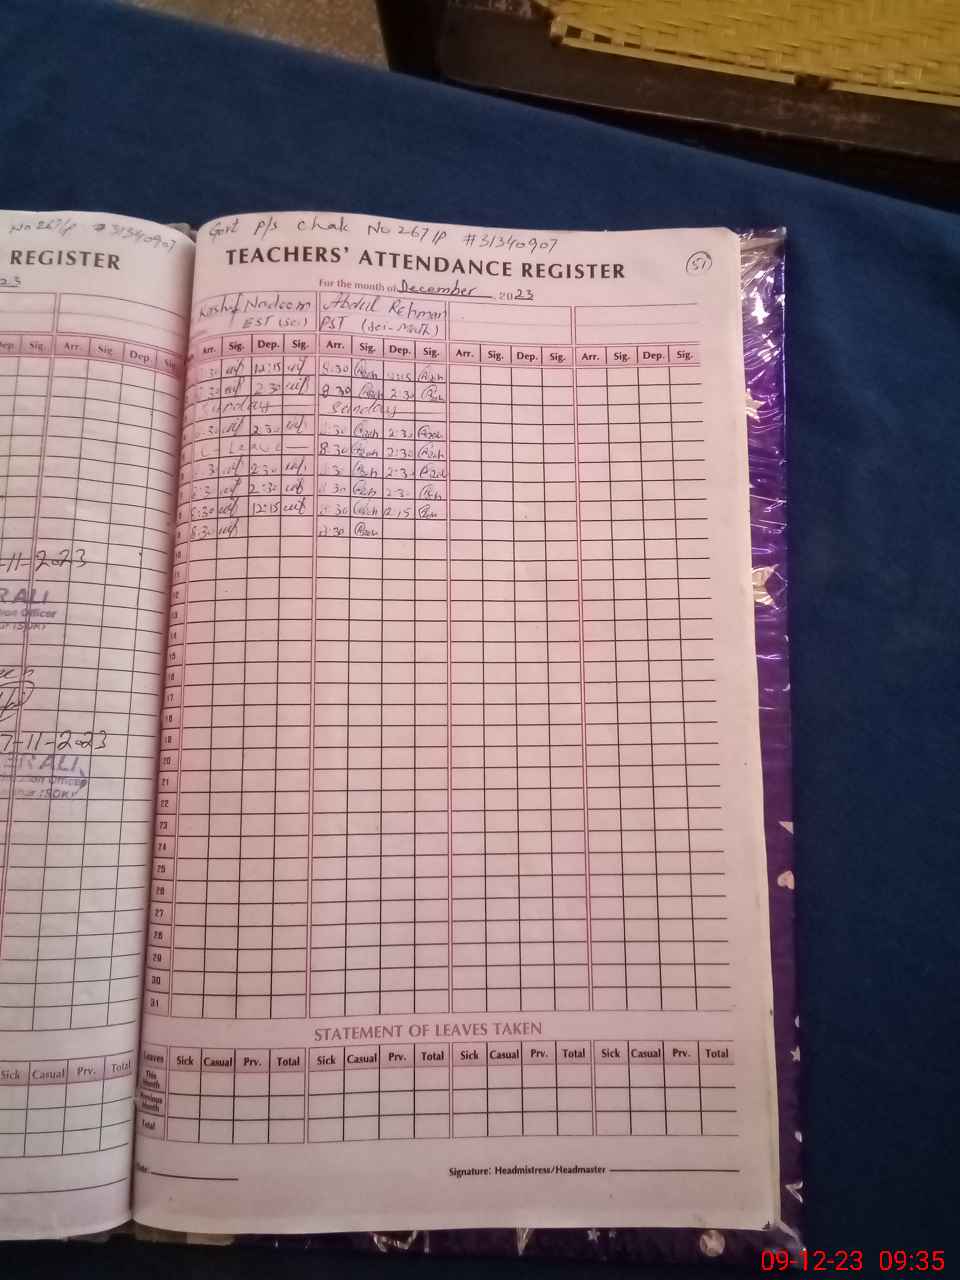 No 267/P #31340907
REGISTER
23
Dep. Sig. Arr. Sig. Dep. Sig
-11-2023
RALI
7-11-2023
ERALI
Sick Casual Prv. Total
Govt P/s Chak No 267/P #31340907
TEACHERS' ATTENDANCE REGISTER
51
For the month of December 2023
Kashif Nadeem Abdul Rehman
EST (Sci) PST (Sci-Math)
Arr. Sig. Dep. Sig. Arr. Sig. Dep. Sig. Arr. Sig. Dep. Sig. Arr. Sig. Dep. Sig.
:30 12:15 8:30 12:15
:30 2:30 8:30 2:30
Sunday Sunday
8:30 2:30 8:30 2:30
C - Leave 8:30 2:30
8:30 2:30 8:30 2:30
8:30 2:30 8:30 2:30
8:30 12:15 8:30 12:15
9 8:30 8:30
10
11
12
13
14
15
16
17
18
19
20
21
22
23
24
25
26
27
28
29
30
31
STATEMENT OF LEAVES TAKEN
Leaves Sick Casual Prv. Total Sick Casual Prv. Total Sick Casual Prv. Total Sick Casual Prv. Total
This Month
Previous Month
Total
Date:
Signature: Headmistress/Headmaster
09-12-23 09:35